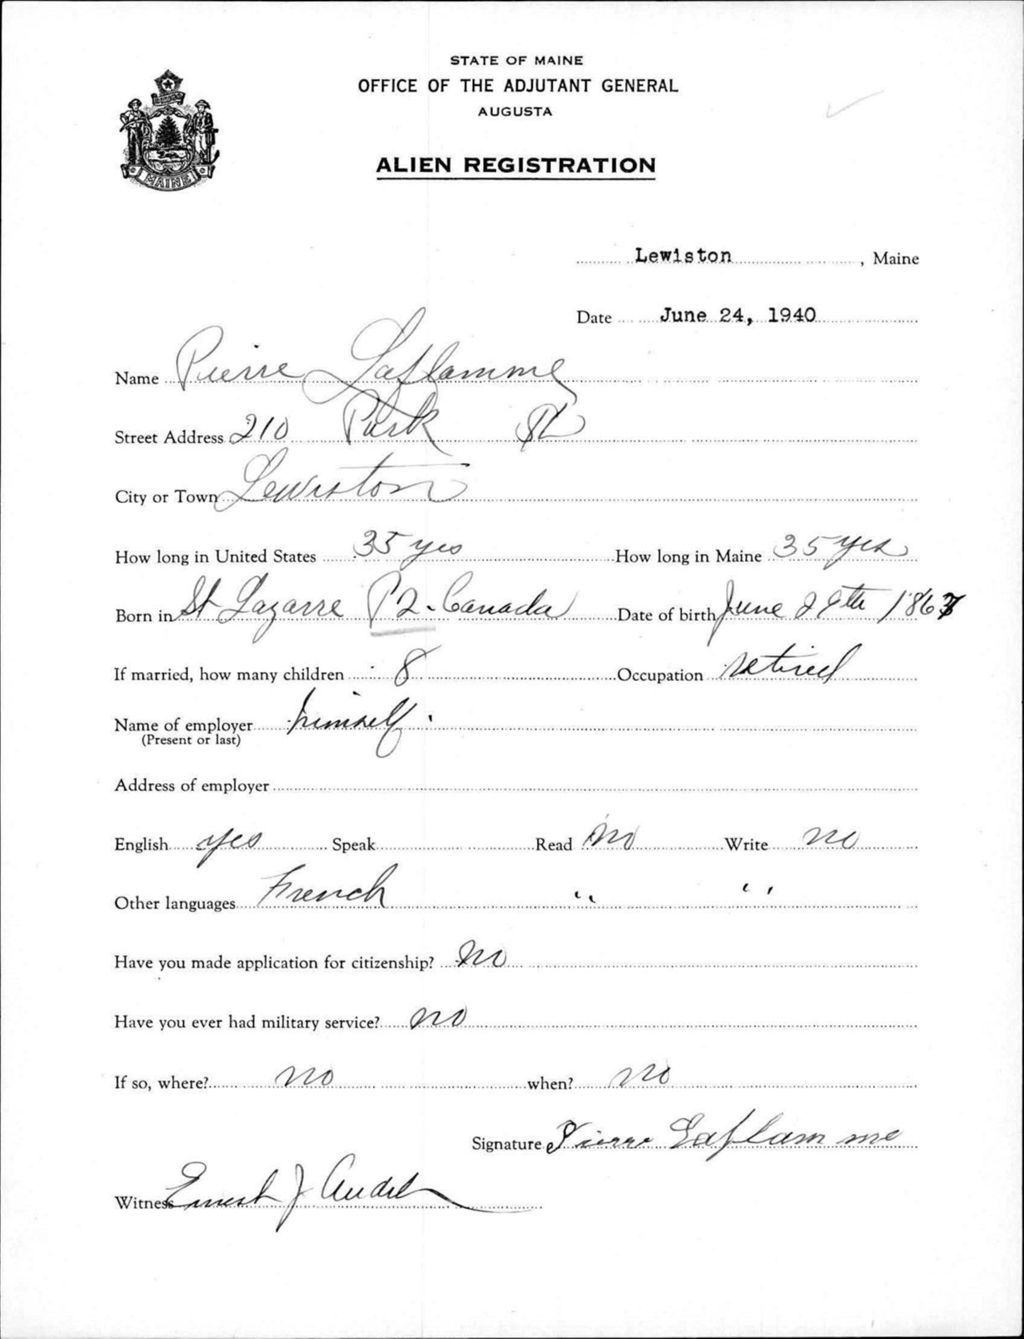 STATE OF MAINE
OFFICE OF THE ADJUTANT GENERAL
AUGUSTA
ALIEN REGISTRATION
MAINE
Lewiston, Maine
Date June 24, 1940
Name Pierre Laflamme
Street Address 210 Park St
City or Town Lewiston
How long in United States 35 yes How long in Maine 35 yes
Born in St Lazarre P2. Canada Date of birth June 29th 1867
If married, how many children 8 Occupation retired
Name of employer himself.
(Present or last)
Address of employer
English yes Speak Read No Write no
Other languages French " "
Have you made application for citizenship? No
Have you ever had military service? no
If so, where? no when? no
Signature Pierre Laflamme
Witness Ernest J Audet